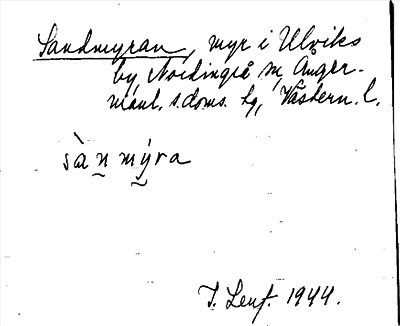 Sandmyran, myr i Ulviks
by, Nordingrå sn, Ånger-
manl. s. doms. hg, Västern. l.
sànmýra
J. Lenf. 1944.